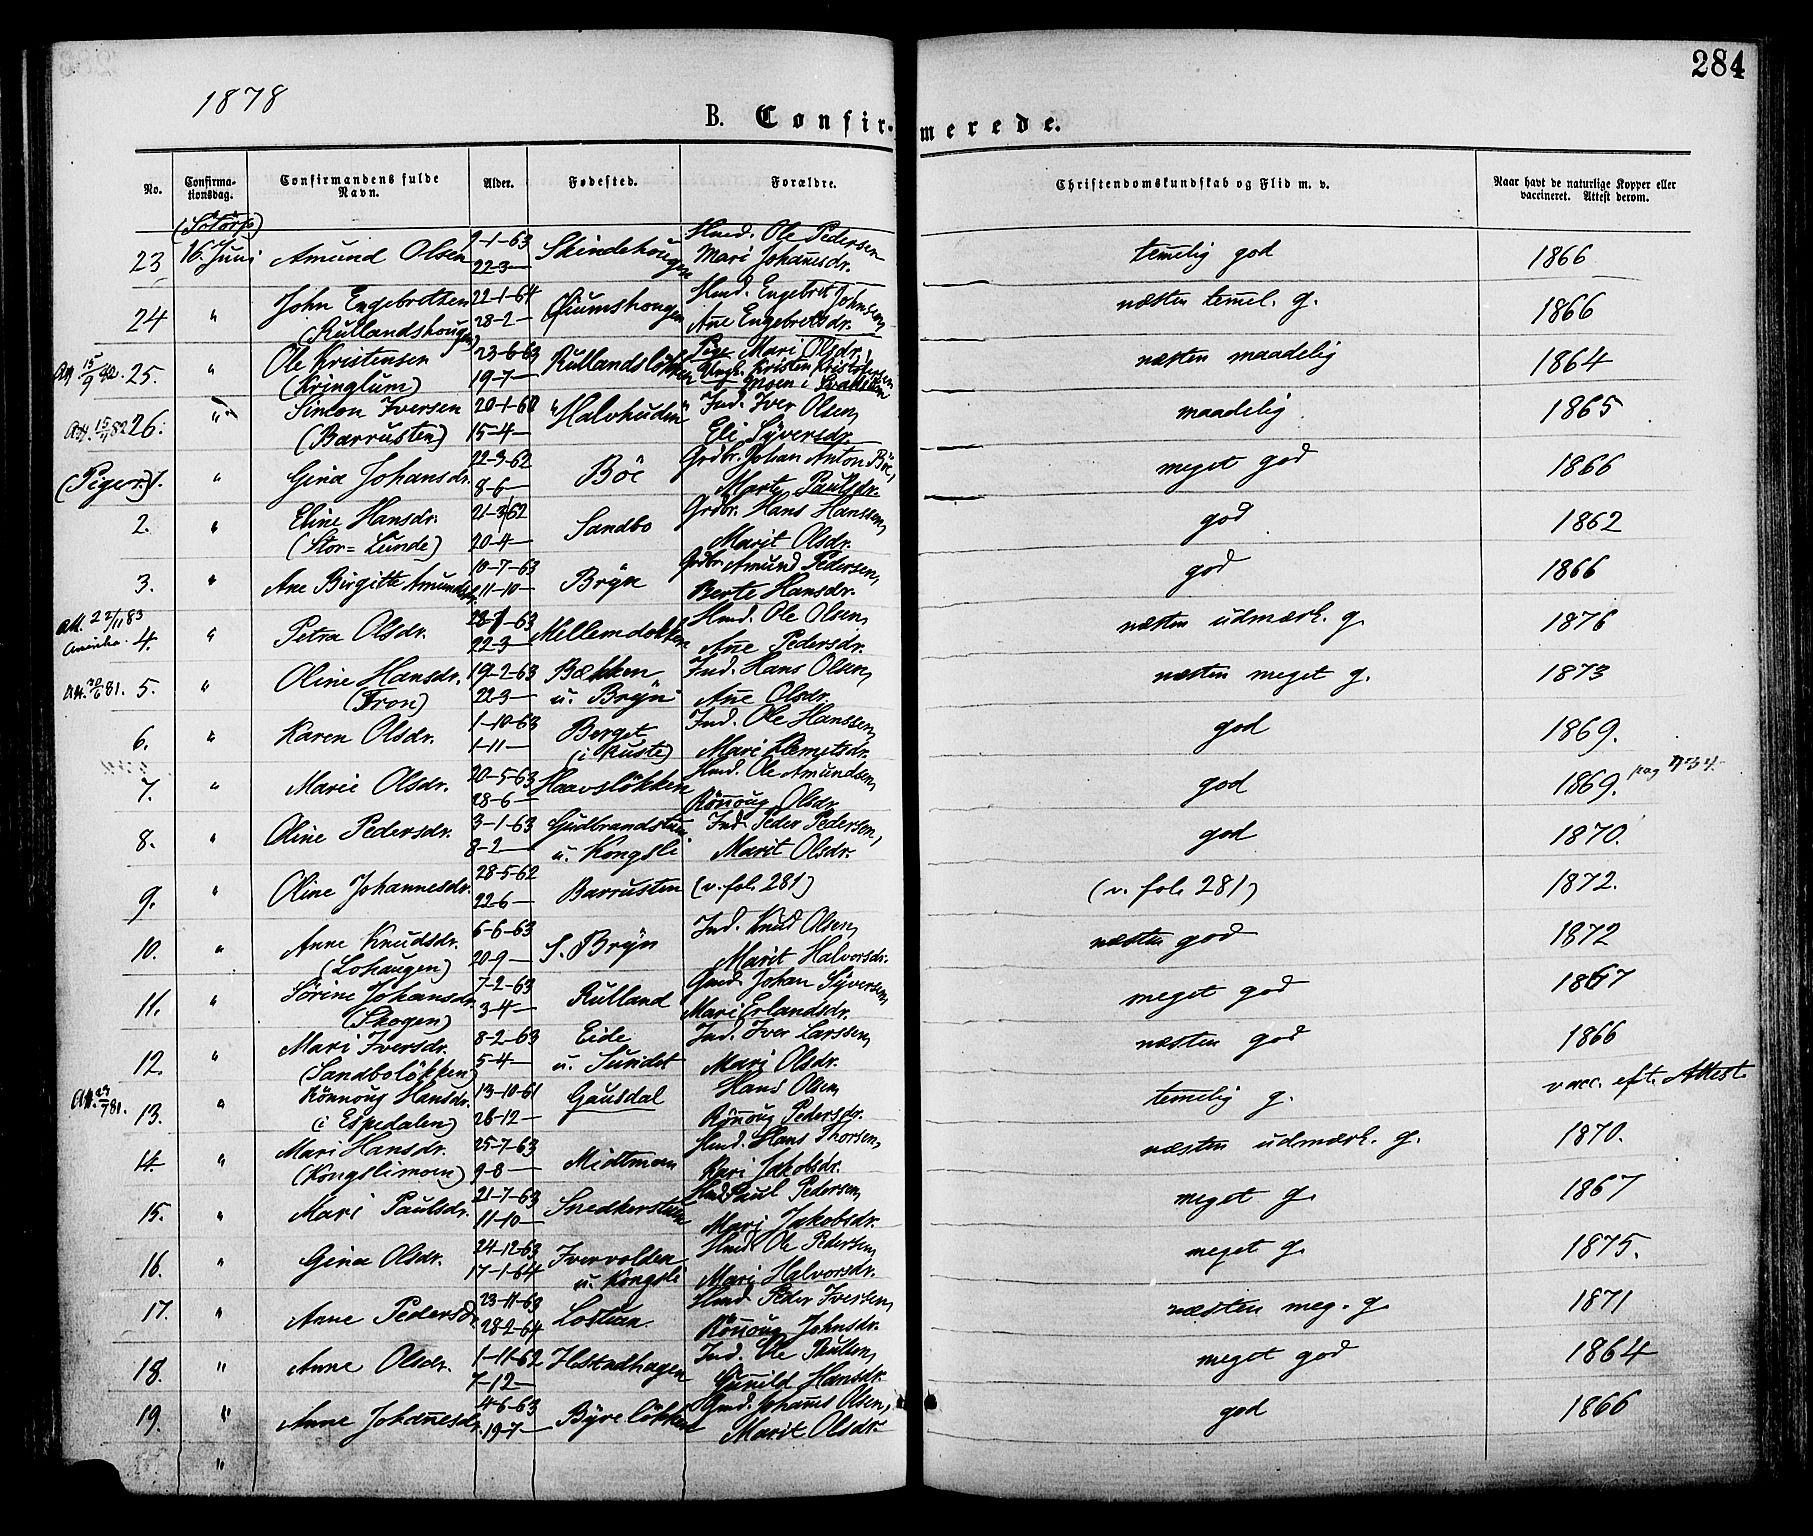 284
1878
B. Confirmerede.
No.
Confirmationsdag.
Confirmandens fulde Navn.
Alder.
Fødested.
Forældre.
Christendomskundskab og Flid m. v.
Naar havt de naturlige Kopper eller vaccineret. Attest derom.
23 16. Juni Amund Olsen 9-1-63 22-3- Skindehougen Hmd. Ole Pedersen Mari Johañesdr. temelig god 1866
24 " John Engebretsen (Rullandshougen) 22-1-64 28-2- Hmd. Engebret Johnsen, Añe Engebretsdr. næsten temel. g. 1866
Att 15/9 82. 25. " Ole Kristensen (Kringlum) 23-6-63 19-7- Rullandsløkken Pige Mari Olsdr., Ungk. Kristen Kristofersen Moen i næsten maadelig 1864
Att. 82 26. " Simon Iversen (Barrusten) 20-1-60 15-4- "Halvhuden" Ind. Iver Olsen, Eli Syversdr. maadelig 1865
(Piger) 1. " Gina Johansdr. 22-3-62 8-6- Böe Grdbr. Johan Anton Böe, Marte Paulsdr. meget god 1866
2. " Eline Hansdr. (Stor=Lunde) 21-3-62 20-4- Sandbo Grdbr. Hans Hanssen, Marit Olsdr. god 1862
3. " Ane Birgitte Amundsdr. 10-7-63 11-10- Bryn Grdbr Amund Pedersen, Berte Hansdr. god 1866
Att. 22/11 83 Amerika 4. " Petra Olsdr. 63 22-3- Mellemløkken Hmd. Ole Olsen, Añe Pedersdr. næsten udmærk. g. 1876
Att. 20/6 81. 5. " Oline Hansdr. (Fron) 19-2-63 22-3- Bækken u. Bryn Ind. Hans Olsen, Añe Olsdr. næsten meget g. 1873
6. " Karen Olsdr. 1-10-63 1-11- Berget (i Kuste) Ind. Ole Hanssen, Mari Clemetsdr. god 1869.
7. " Marie Olsdr. 20-5-63 28-6- Haavsløkken Hmd. Ole Amundsen, Röñoug Olsdr. god 1869. pag 434.
8. " Oline Pedersdr. 3-1-63 8-2- Gudbrandstuen u. Kongsli Ind. Peder Pedersen, Marit Olsdr. god 1870.
9. " Oline Johannesdr. 28-5-62 22-6- Barrusten (v. fol. 281) (v. fol. 281) 1872.
10. " Anne Knudsdr. (Lohaugen) 6-6-63 20-9- S. Bryn Ind. Knud Olsen, Marit Halvorsdr. næsten god 1872
11. " Sörine Johansdr. (Skogen) 7-2-63 3-4- Rulland Gmd. Johan Syversen, Mari Erlandsdr. meget god 1867
12. " Mari Iversdr. (Sandboløkken) 8-2-63 5-4- Eide u. Sundet Ind. Iver Larssen, Mari Olsdr. næsten god 1866
Att. 81. 13. " Rönnoug Hansdr. (i Espedalen) 13-10-61 26-12- Gausdal Hans Olsen, Röñoug Pedersdr. temelig g. vacc. eft. Attest.
14. " Mari Hansdr. (Kongslimoen) 25-7-63 9-8- Midtmoen Hmd. Hans Thorsen, Kari Jakobsdr. næsten udmærk. g. 1870.
15. " Mari Paulsdr. 21-7-63 11-10- Snedkerstuen Hmd Paul Pedersen, Mari Jakobsdr. meget g. 1867
16. " Gina Olsdr. 24-12-63 17-1-64 Ivervolden u. Kongsli Hmd Ole Pedersen, Mari Halvorsdr. meget g. 1875.
17. " Anne Pedersdr 23-11-63 28-2-64 Hmd Peder Iversen, Röñoug Johnsdr. næsten meg. g. 1871
18. " Anne Olsdr. 1-11-62 7-12- Ind. Ole Paulsen, Gunild Hansdr. meget god 1864
19. " Anne Johañesdr. 4-6-63 19-7- Byreløkken Gmd. Johañes Olsen, Marit Olsdr. god 1866
"